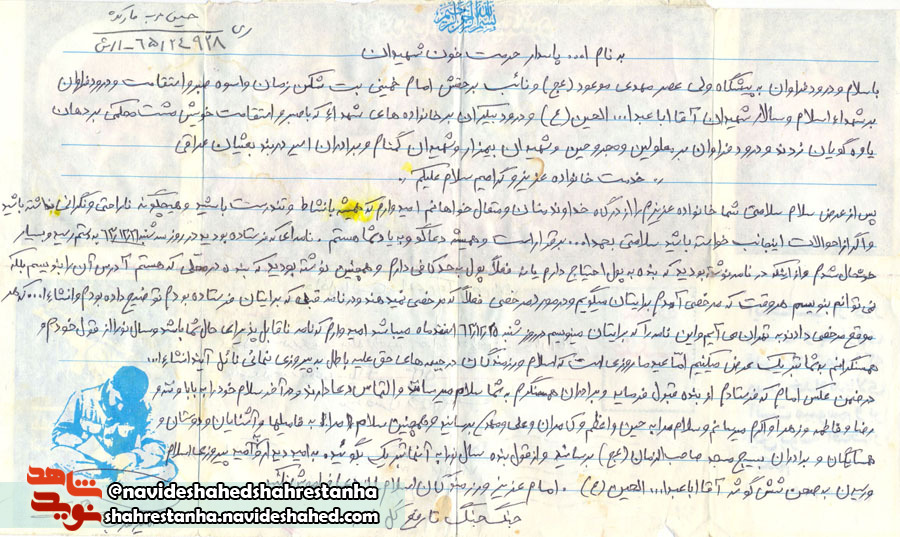 بسم الله الرحمن الرحیم
حسین عرب مارکده
۶۵۱۲۴۹۲۸-ارتش
به نام ا... پاسدار حرمت خون شهیدان
باسلام و درود فراوان به پیشگاه ولی عصر مهدی موعود (عج) و نائب برحقش امام خمینی بت شکن زمان واسوه صبر و استقامت و درود فراوان
بر شهداء اسلام و سالار شهیدان آقا ابا عبدا... الحسین (ع) و درود بیکران بر خانواده های شهداء که باصبر و استقامت خویش مشت محکمی بر دهان
یاوه گویان زدند و درود فراوان بر معلولین و مجروحین و شهیدان بیمزار و شهیدان گمنام و برادران اسیر در بند بعثیان عراقی
,, خدمت خانواده عزیز و گرامیم سلام علیکم ,,
پس از عرض سلام سلامتی شما خانواده عزیزم را از درگاه خداوند منان و متعال خواهانم امیدوارم که همیشه بانشاط و تندرست باشید و هیچگونه ناراحتی و نگرانی نداشته باشید
و اگر از احوالات اینجانب خواسته باشید سلامتی بحمدا... برقرار است و همیشه دعاگو به یاد شما هستم . نامه ای که فرستاده بودید در روز سه شنبه رسید و بسیار
خوشحال شدم و از اینکه در نامه نوشته بودید که بنده به پول احتیاج دارم یا نه فعلاً پول به حد کافی دارم و همچنین نوشته بودید که بنده در محلی که هستم آدرس آن را بنویسم بلکه
نمی توانم بنویسم هر وقت که مرخصی آمدم برایتان میگویم و در مورد مرخصی فعلاً که مرخصی نمیدهند و در نامه قبلی که برایتان فرستاده بودم توضیح داده بودم و انشاءا... که هر
موقع مرخصی دادند به تهران می آیم و این نامه را که برایتان مینویسم در روز شنبه اسفند ماه میباشد امیدوارم که نامه ناقابل پذیرای حال شما باشد و سال نو را از قول خودم و
همسنگرانم به شما تبریک عرض میکنم امّا عید ما روزی است که اسلام و رزمندگان در جبهه های حق علیه باطل به پیروزی نهائی نائل آیند انشاءا...
در ضمن عکس امام که فرستادم از بنده قبول فرماید و برادران همسنگرم به شما سلام میرسانند و التماس دعا دارند و در آخر سلام خود را به بابا و ننه و
رضا و فاطمه و زهرا و اکرم میرسانم و سلام مرا به حسین و اعظم و کامران و علی و مهدی برسانید و همچنین سلام مرا به فامیلها و آشنایان و دوستان و
همسایگان و برادران بسیج مسجد صاحب الزمان (عج) برسانید و از قول بنده سال نو را به آنها تبریک بگوئید به امید دیدار به امید پیروزی اسلام
و رسیدن به صحن شش گوشه آقا ابا عبدا... الحسین (ع) . امام عزیز و رزمندگان اسلام را
جنگ جنگ تا رفع کل
نوید شاهد
@navideshahedshahrestanha
shahrestanha.navideshahed.com